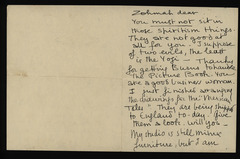 Zohmah dear
You must not sit in
those spiritism things.
They are not good at
all for you. I suppose
of two evils, the least
is the Yogi — Thanks
for getting Burns to handle
"The Picture Book". You
are a good business woman.
I just finished arranging
the drawings for the "Mexican
Tales" They are being shipped
to England to-day. Give
them a look. will you.
My studio is still minus
furniture, but I am